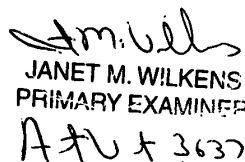 JANET M. WILKENS
PRIMARY EXAMINER
Art 3637